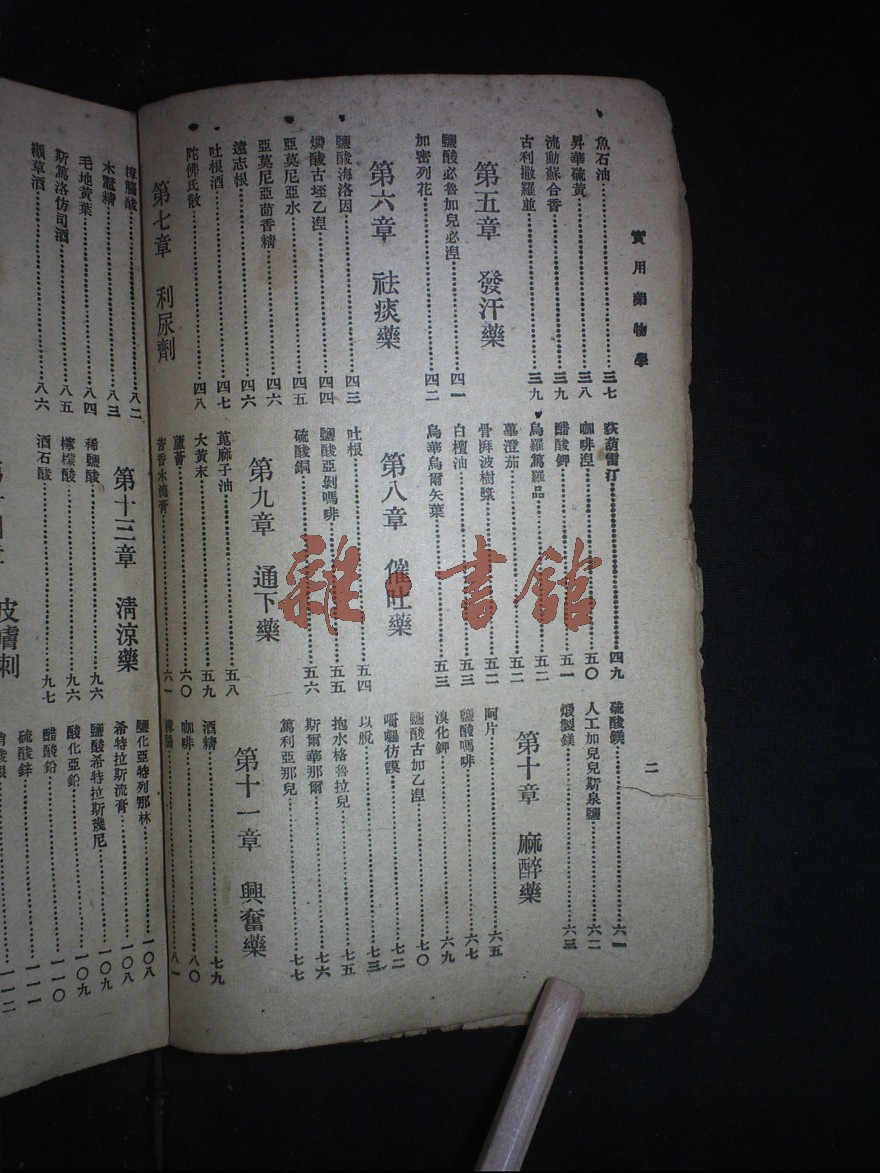 實用藥物學
二
魚石油 三七
昇華硫黃 三八
流動蘇合香 三九
古利撒羅並 三九
第五章 發汗藥
鹽酸必魯加兒必涅 四一
加密列花 四二
第六章 祛痰藥
鹽酸海洛因 四三
燐酸古垤乙涅 四四
亞莫尼亞水 四五
亞莫尼亞茴香精 四六
遠志根 四六
吐根酒 四七
陀佛氏散 四八
第七章 利尿劑
荻葫雷汀 四九
咖啡涅 五〇
醋酸鉀 五一
烏羅篤羅品 五二
蓽澄茄 五二
骨湃波樹漿 五二
白檀油 五三
烏華烏爾矢葉 五三
第八章 催吐藥
吐根 五四
鹽酸亞剝嗎啡 五五
硫酸銅 五六
第九章 通下藥
萞麻子油 五八
大黃末 五九
蘆薈 六〇
六一
硫酸鎂 六一
人工加兒兒斯泉鹽 六二
煅製鎂 六三
第十章 麻醉藥
阿片 六五
鹽酸嗎啡 六七
溴化鉀 六九
鹽酸古加乙涅 七〇
哥羅仿謨 七二
以脫 七三
抱水格魯拉兒 七五
斯爾華那爾 七六
篤利亞那兒 七七
第十一章 興奮藥
酒精 七九
咖啡 八〇
樟腦 八一
樟腦酸 八二
木鼈精 八三
毛地黃葉 八四
斯篤洛仿司酒 八五
纈草酒 八六
第十三章 清涼藥
稀鹽酸 九六
檸檬酸 九六
酒石酸 九七
皮膚刺
鹽化亞特列那林 一〇八
希特拉斯流膏 一〇八
鹽酸希特拉斯幾尼 一〇九
酸化亞鉛 一〇九
醋酸鉛 一一〇
硫酸鋅 一一一
一一二
雜·書館